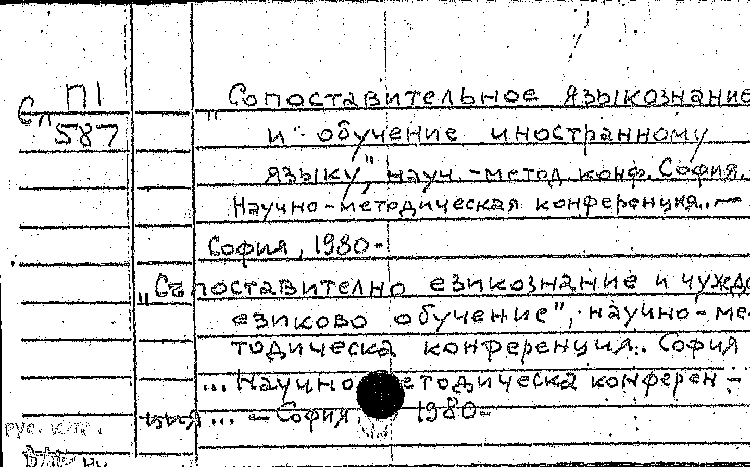 Сл П1
587
"Сопоставительное языкознание
и обучение иностранному
языку", науч.-метод. конф. София.
Научно-методическая конференция..—
София, 1980-
„Съпоставително езикознание и чуждо
езиково обучение", научно-ме-
тодическа конференция. София
... Научно методическа конферен-
ция... — София 1980-
рус.